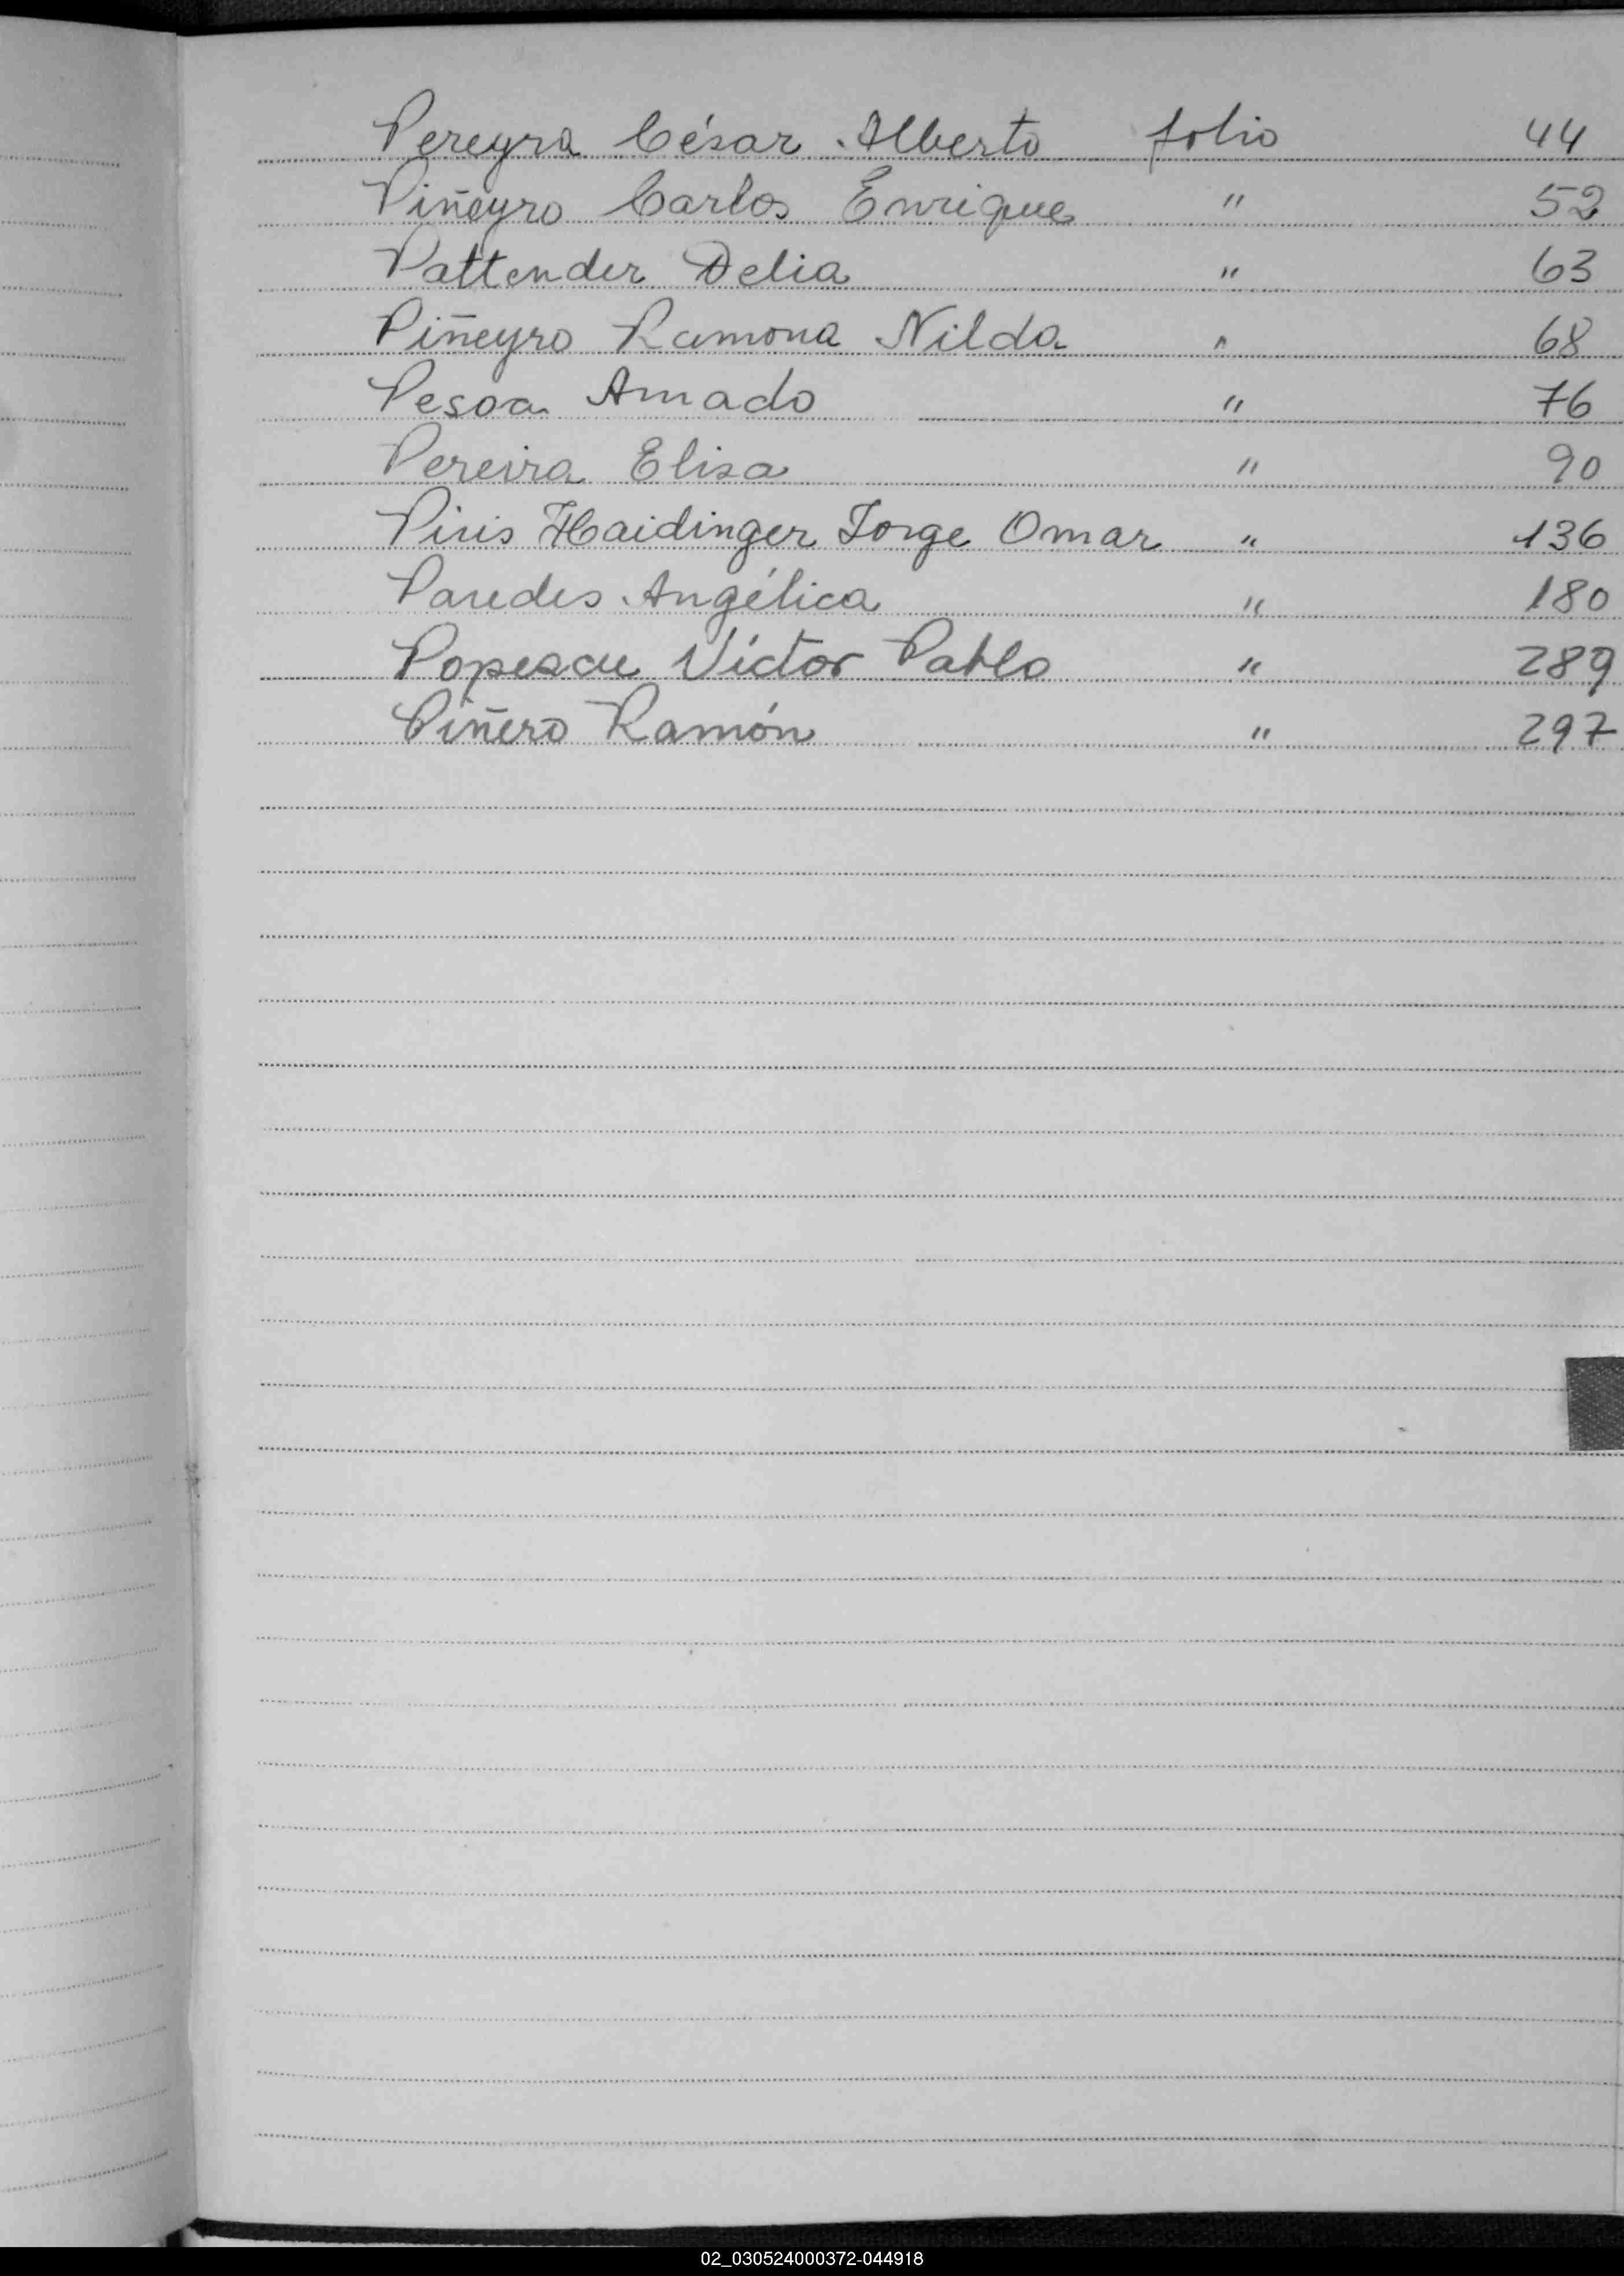 Pereyra César Alberto folio 44
Piñeyro Carlos Enrique " 52
Pattender Delia " 63
Piñeyro Ramona Nilda " 68
Pesoa Amado " 76
Pereira Elisa " 90
Piris Haidinger Jorge Omar " 136
Paredes Angélica " 180
Popescu Víctor Pablo " 289
Piñero Ramón " 297
02_030524000372-044918